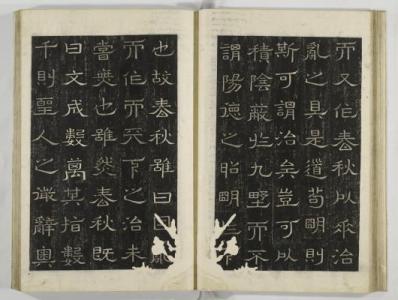 而又作春秋以垂治
亂之具是道苟明則
斯可謂治矣豈可以
積陰蔽九野而不
謂陽德之昭明
也故春秋雖曰因
而作而天下之治未
嘗喪也雖然春秋既
曰文成數萬其指數
千則聖人之微辭奧